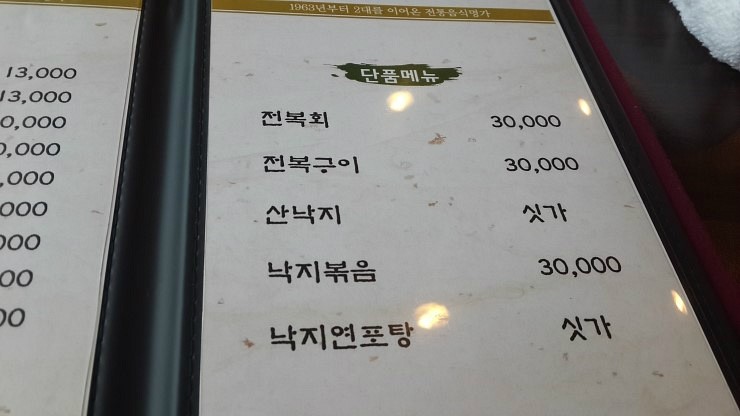 13,000
13,000
0,000
0,000
,000
000
000
00
00
1963년부터 2대를 이어온 전통음식명가
단품메뉴
전복회 30,000
전복구이 30,000
산낙지 싯가
낙지볶음 30,000
낙지연포탕 싯가